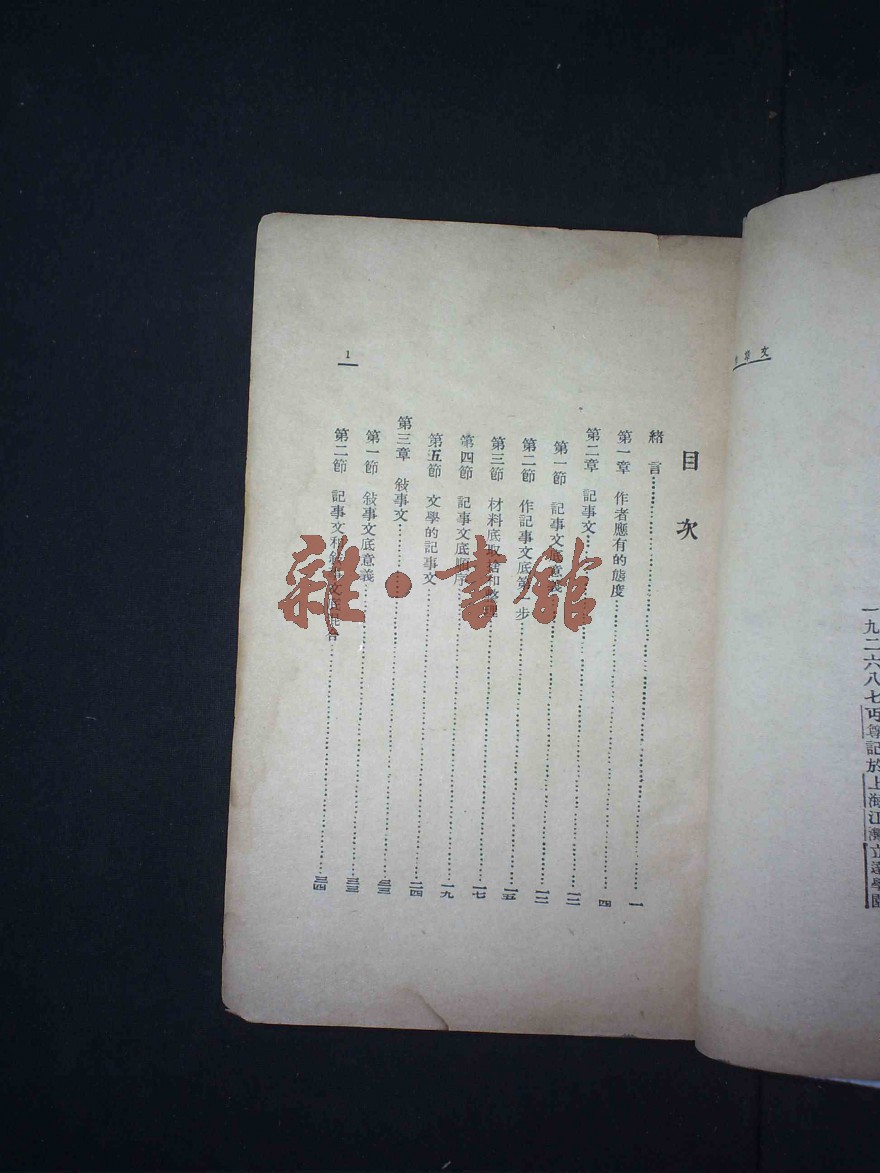 文章
一九二六八七丏尊記於上海江灣立達學園
目次
緒言……一
第一章 作者應有的態度……四
第二章 記事文……一二
第一節 記事文底意義……一二
第二節 作記事文底第一步……一五
第三節 材料底取捨和整理……一七
第四節 記事文底順序……一九
第五節 文學的記事文……二四
第三章 敍事文……三三
第一節 敍事文底意義……三三
第二節 記事文和敍事文底混合……三四
1
雜·書館